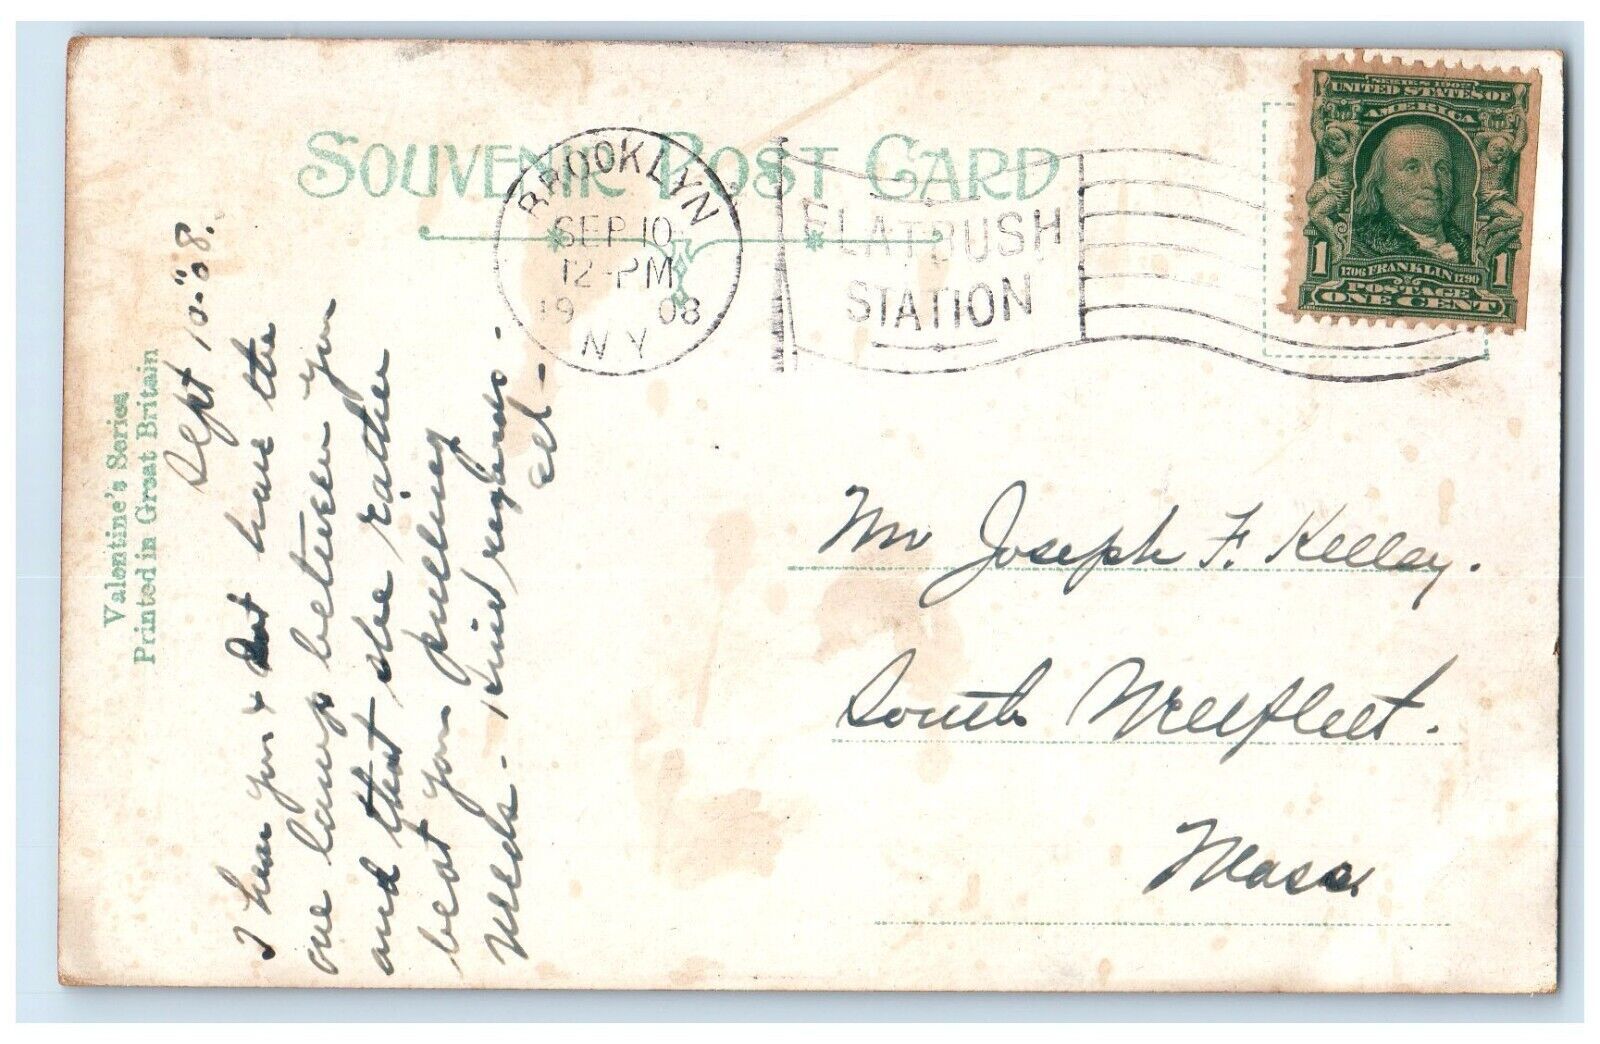 SOUVENIR POST CARD
BROOKLYN
SEP 10
12-PM
1908
N.Y.
FLATBUSH
STATION
SERIES 1902
UNITED STATES OF
AMERICA
1706 FRANKLIN 1790
POSTAGE
1 ONE CENT 1
Valentine's Series
Printed in Great Britain
Sept 10-"08.
I hear you & Dot have the
one lamp between you
and that she rather
beat you pulling
weeds - Kind regards -
Mr Joseph F. Kelley.
South Wellfleet.
Mass.